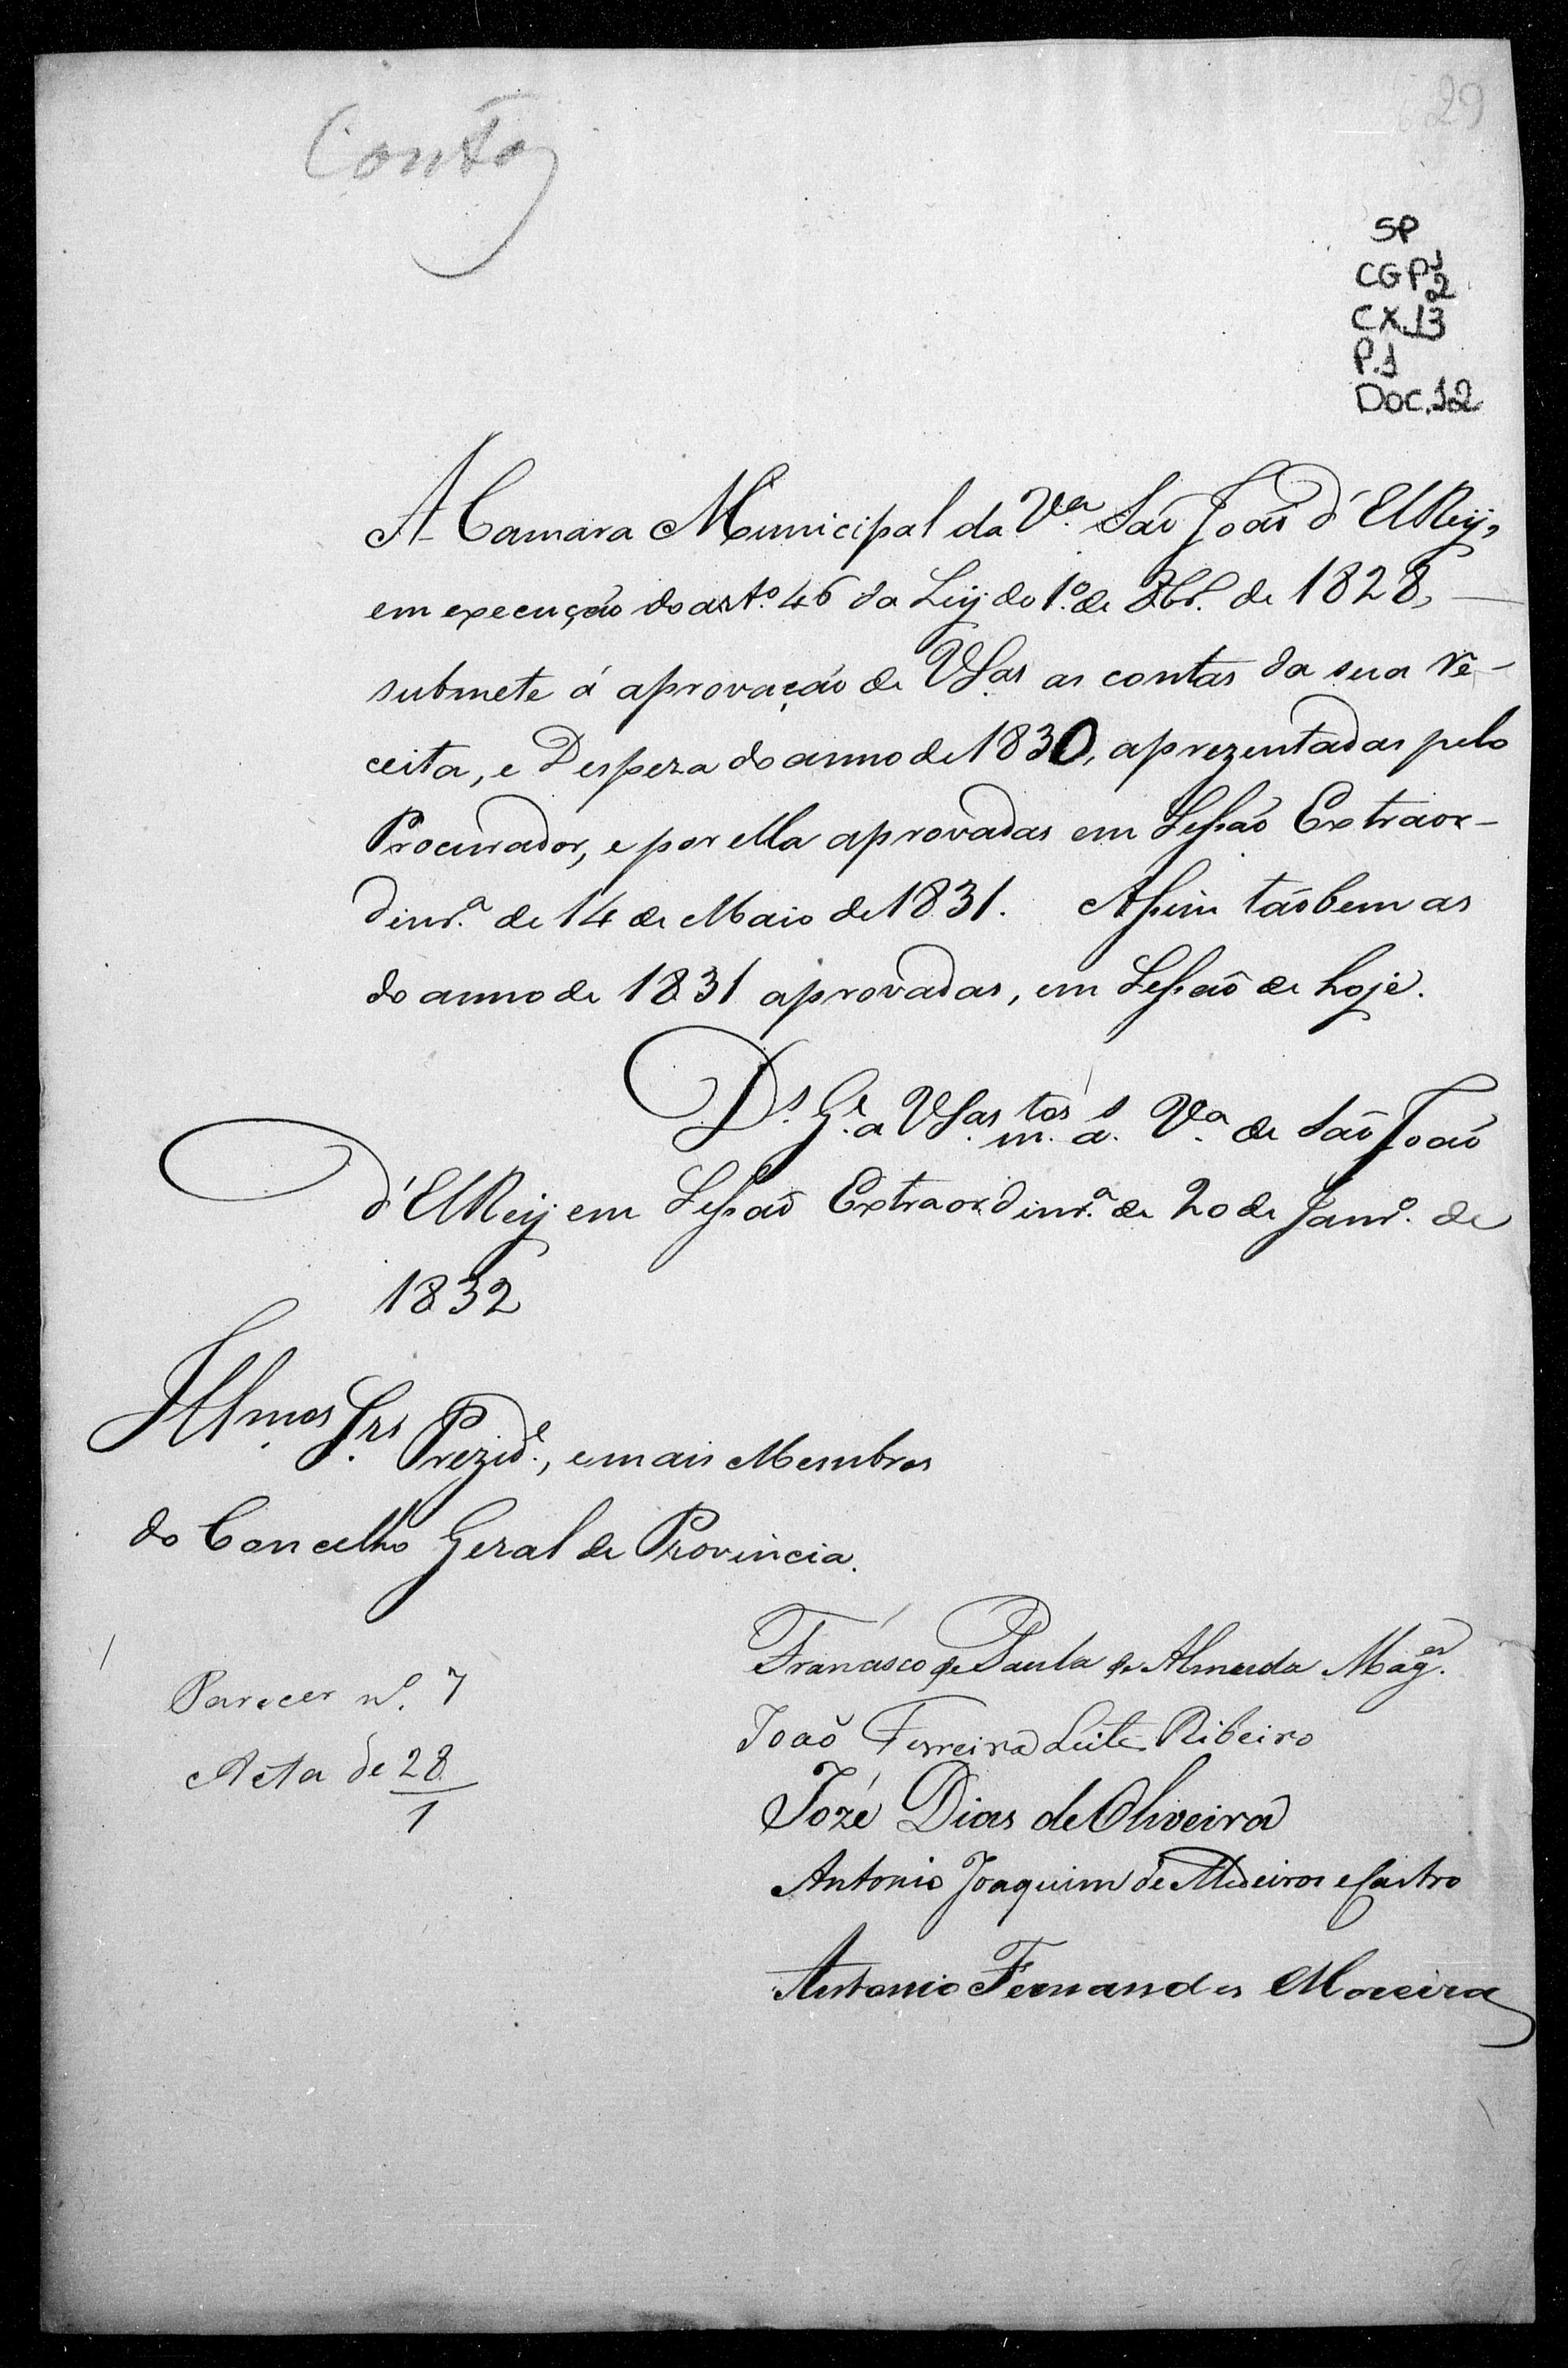 29
Contas
SP
CGP 1/2
CX.13
P.1
DOC.12
A Camara Municipal da V.ª São João d'ElRey,
em execução do art.º 46 da Ley do 1.º de 8br.º de 1828,
submete á aprovação de VSas. as contas da sua re-
ceita, e Despeza do anno de 1830, aprezentadas pelo
Procurador, e por ella aprovadas em Sessão Extraor-
dinr.ª de 14 de Maio de 1831. Assim tãobem as
do anno de 1831 aprovadas, em Sessão de hoje.
D.s G.e a VSas. m.tos a.s V.ª de São João
d'ElRey em Sessão Extraordinr.ª de 20 de Janr.º de
1832
Illmos. Srs. Prezid.e, e mais Membros
do Concelho Geral de Provincia.
Francisco de Paula de Almeida Mag.es
João Ferreira Leite Ribeiro
Jozé Dias de Oliveira
Antonio Joaquim de Medeiros e Castro
Antonio Fernandes Moreira
Parecer n.º 7
Acta de 28/1